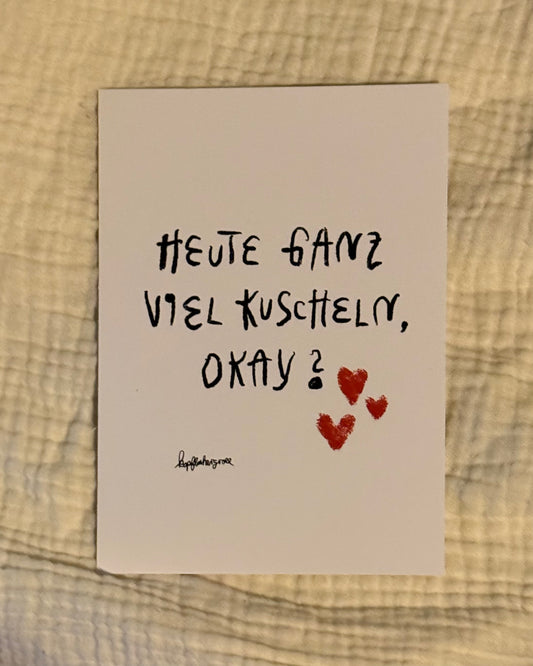 HEUTE GANZ
VIEL KUSCHELN,
OKAY?